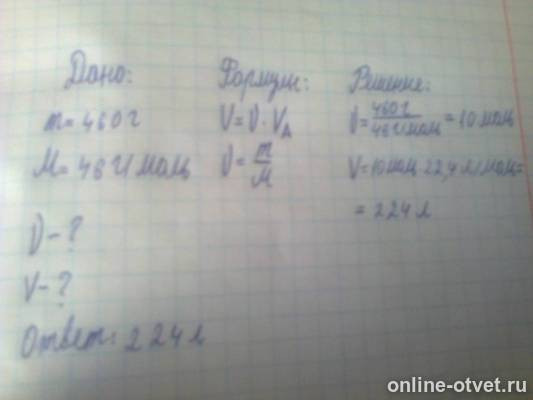 Дано:
m = 460 г
M = 46 г/моль
ν - ?
V - ?
Ответ: 224 л
Формулы:
V = ν · Vм
ν = m/M
Решение:
ν = 460 г/46 г/моль = 10 моль
V = 10 моль · 22,4 л/моль =
= 224 л
online-otvet.ru